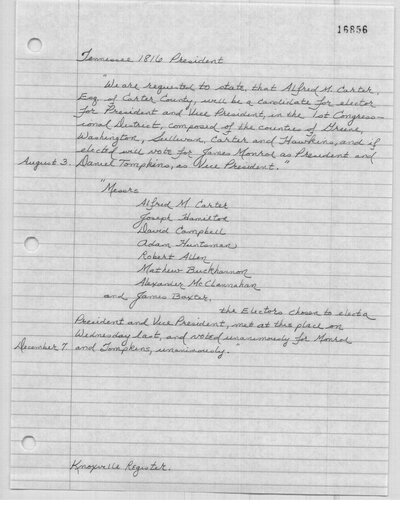 16856
Tennessee 1816 President
"We are requested to state, that Alfred M. Carter,
Esq. of Carter County, will be a candidate for elector
for President and Vice President, in the 1st Congress-
ional District, composed of the counties of Greene,
Washington, Sullivan, Carter and Hawkins, and if
elected will vote for James Monroe as President and
August 3. Daniel Tompkins, as Vice President."
"Messrs
Alfred M. Carter
Joseph Hamilton
David Campbell
Adam Huntsman
Robert Allen
Mathew Buckhannon
Alexander McClannahan
and James Baxter,
the Electors chosen to elect a
President and Vice President, met at this place on
Wednesday last, and voted unanimously for Monroe
December 7. and Tompkins, unanimously."
Knoxville Register.